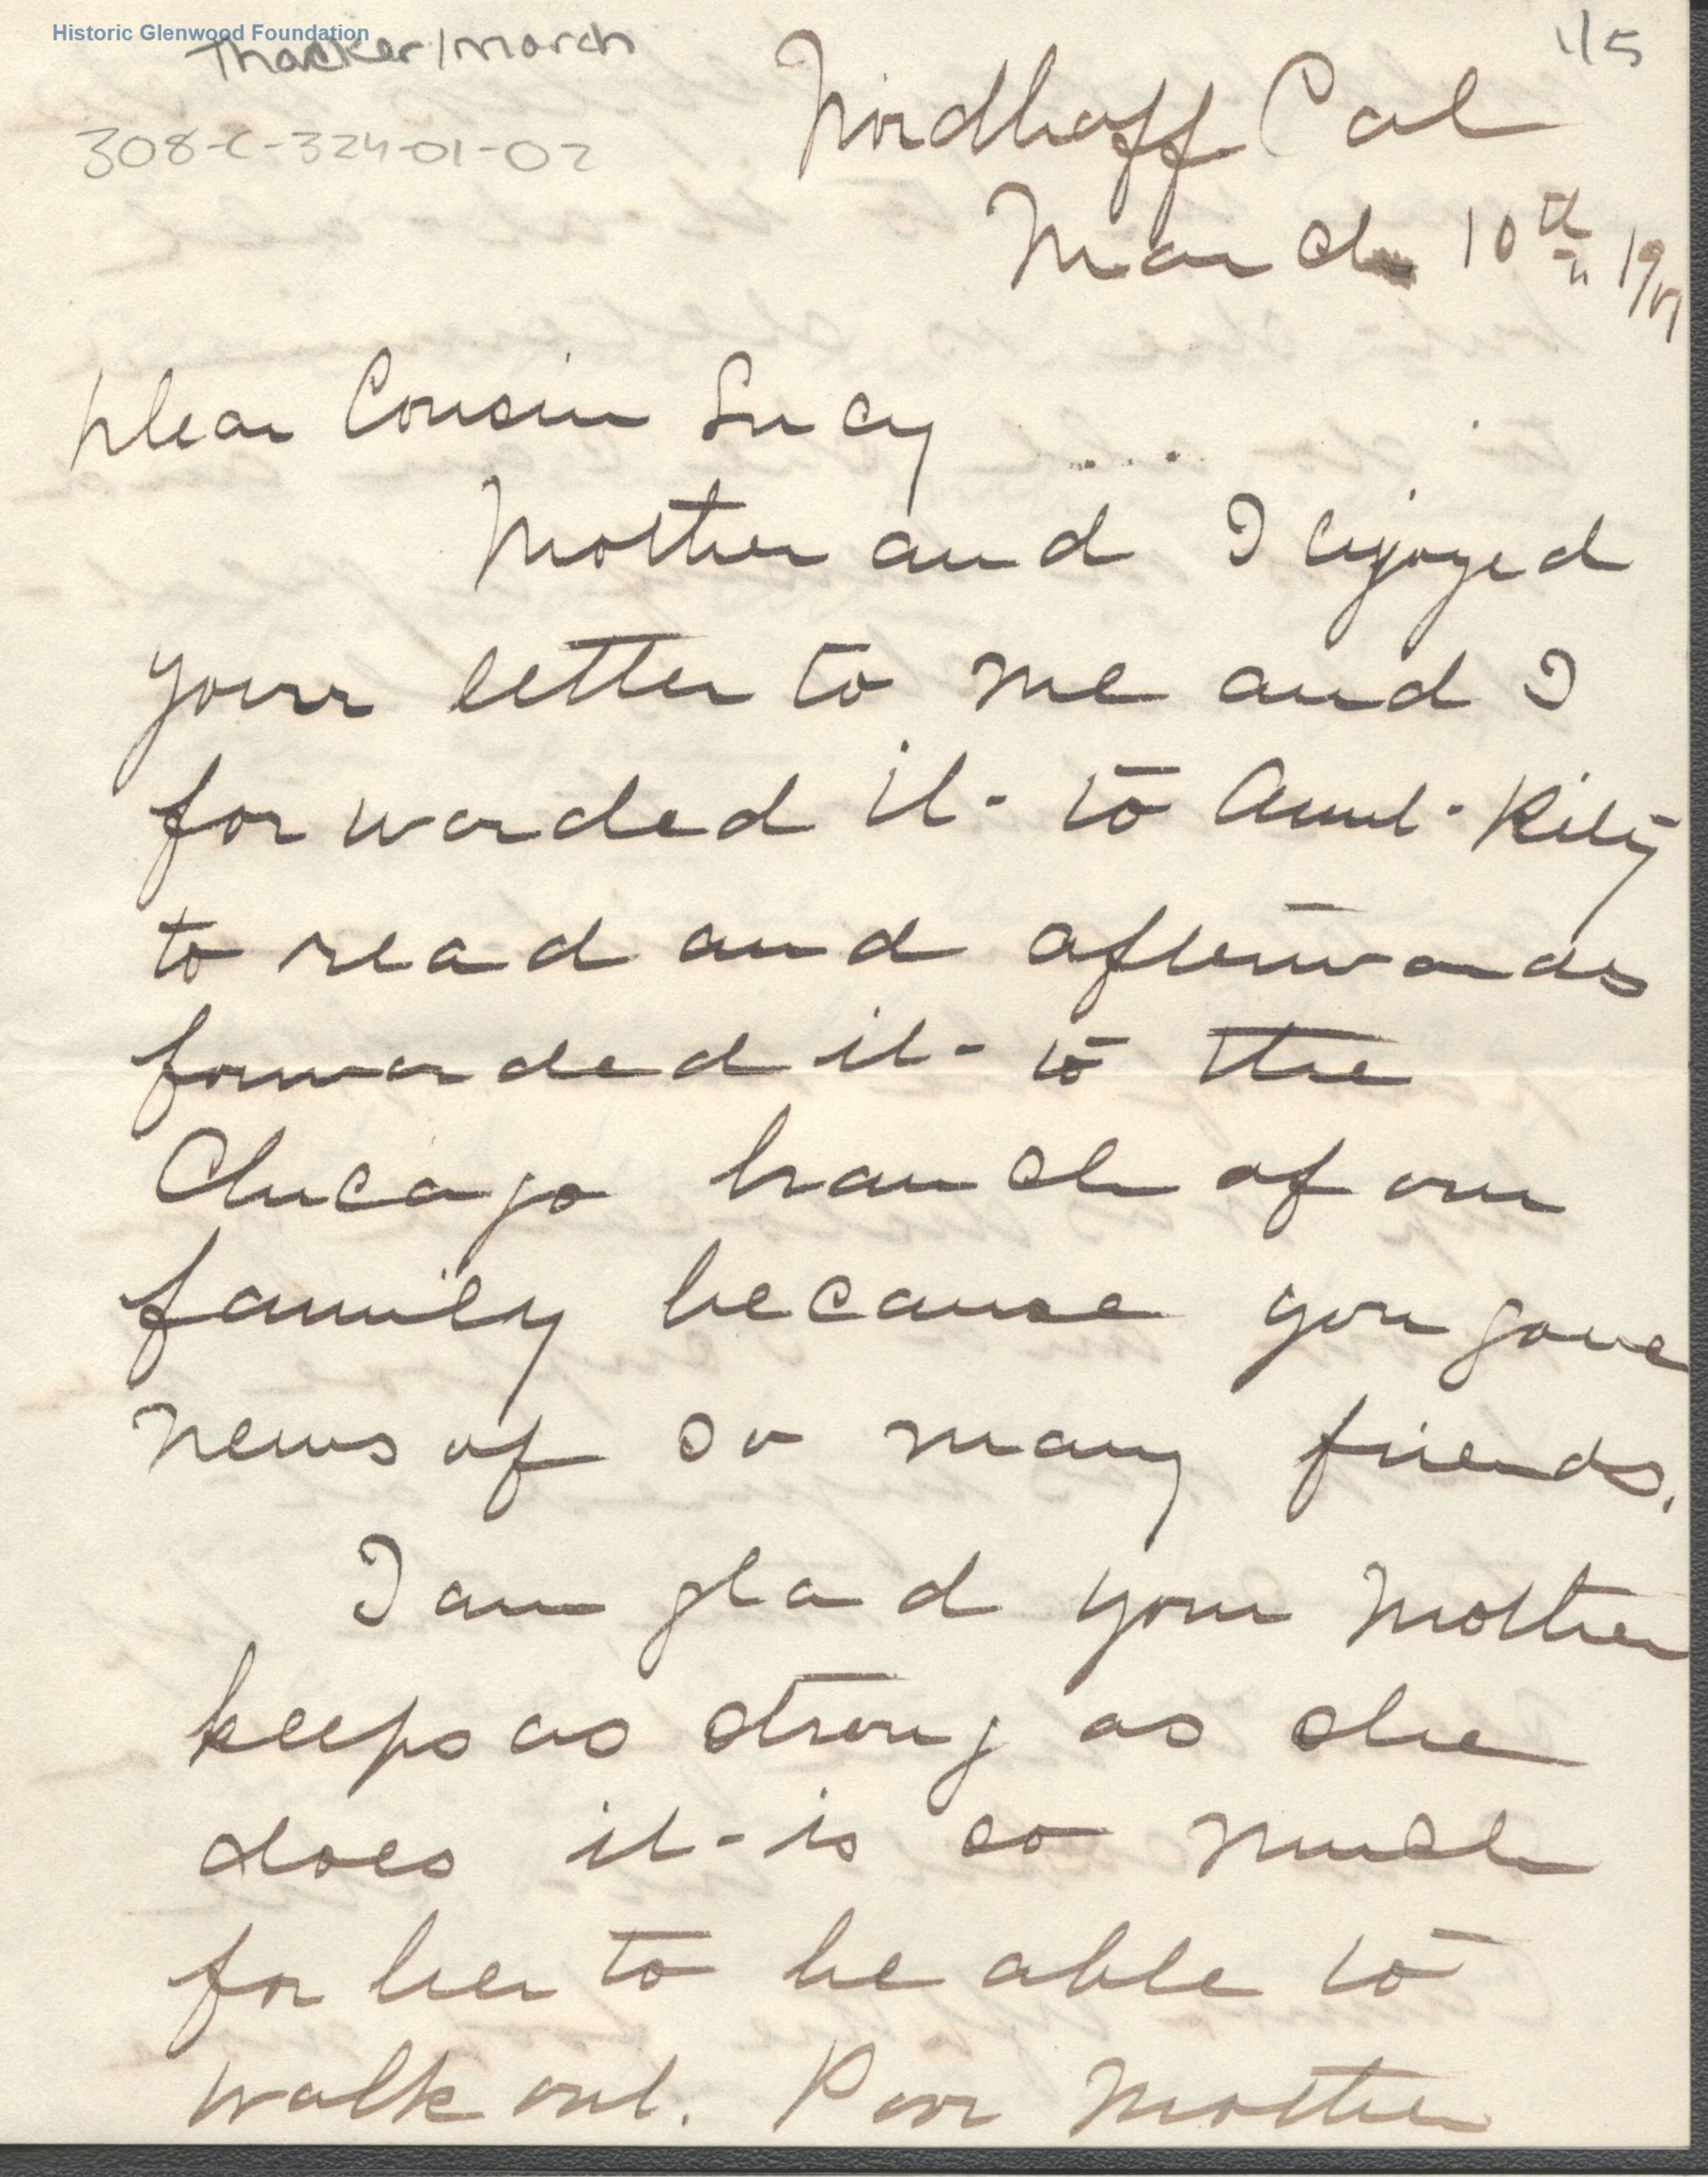 Historic Glenwood Foundation
Thacker/March
1/5
308-C-324-01-02
Nordhoff Cal
March 10th
Dear Cousin Lucy
Mother and I enjoyed
your letter to me and I
forwarded it to Aunt Kity
to read and afterwards
forwarded it to the
Chicago branch of our
family because you gave
news of so many friends.
I am glad your Mother
keeps as strong as she
does it is so much
for her to be able to
walk out. Poor Mother